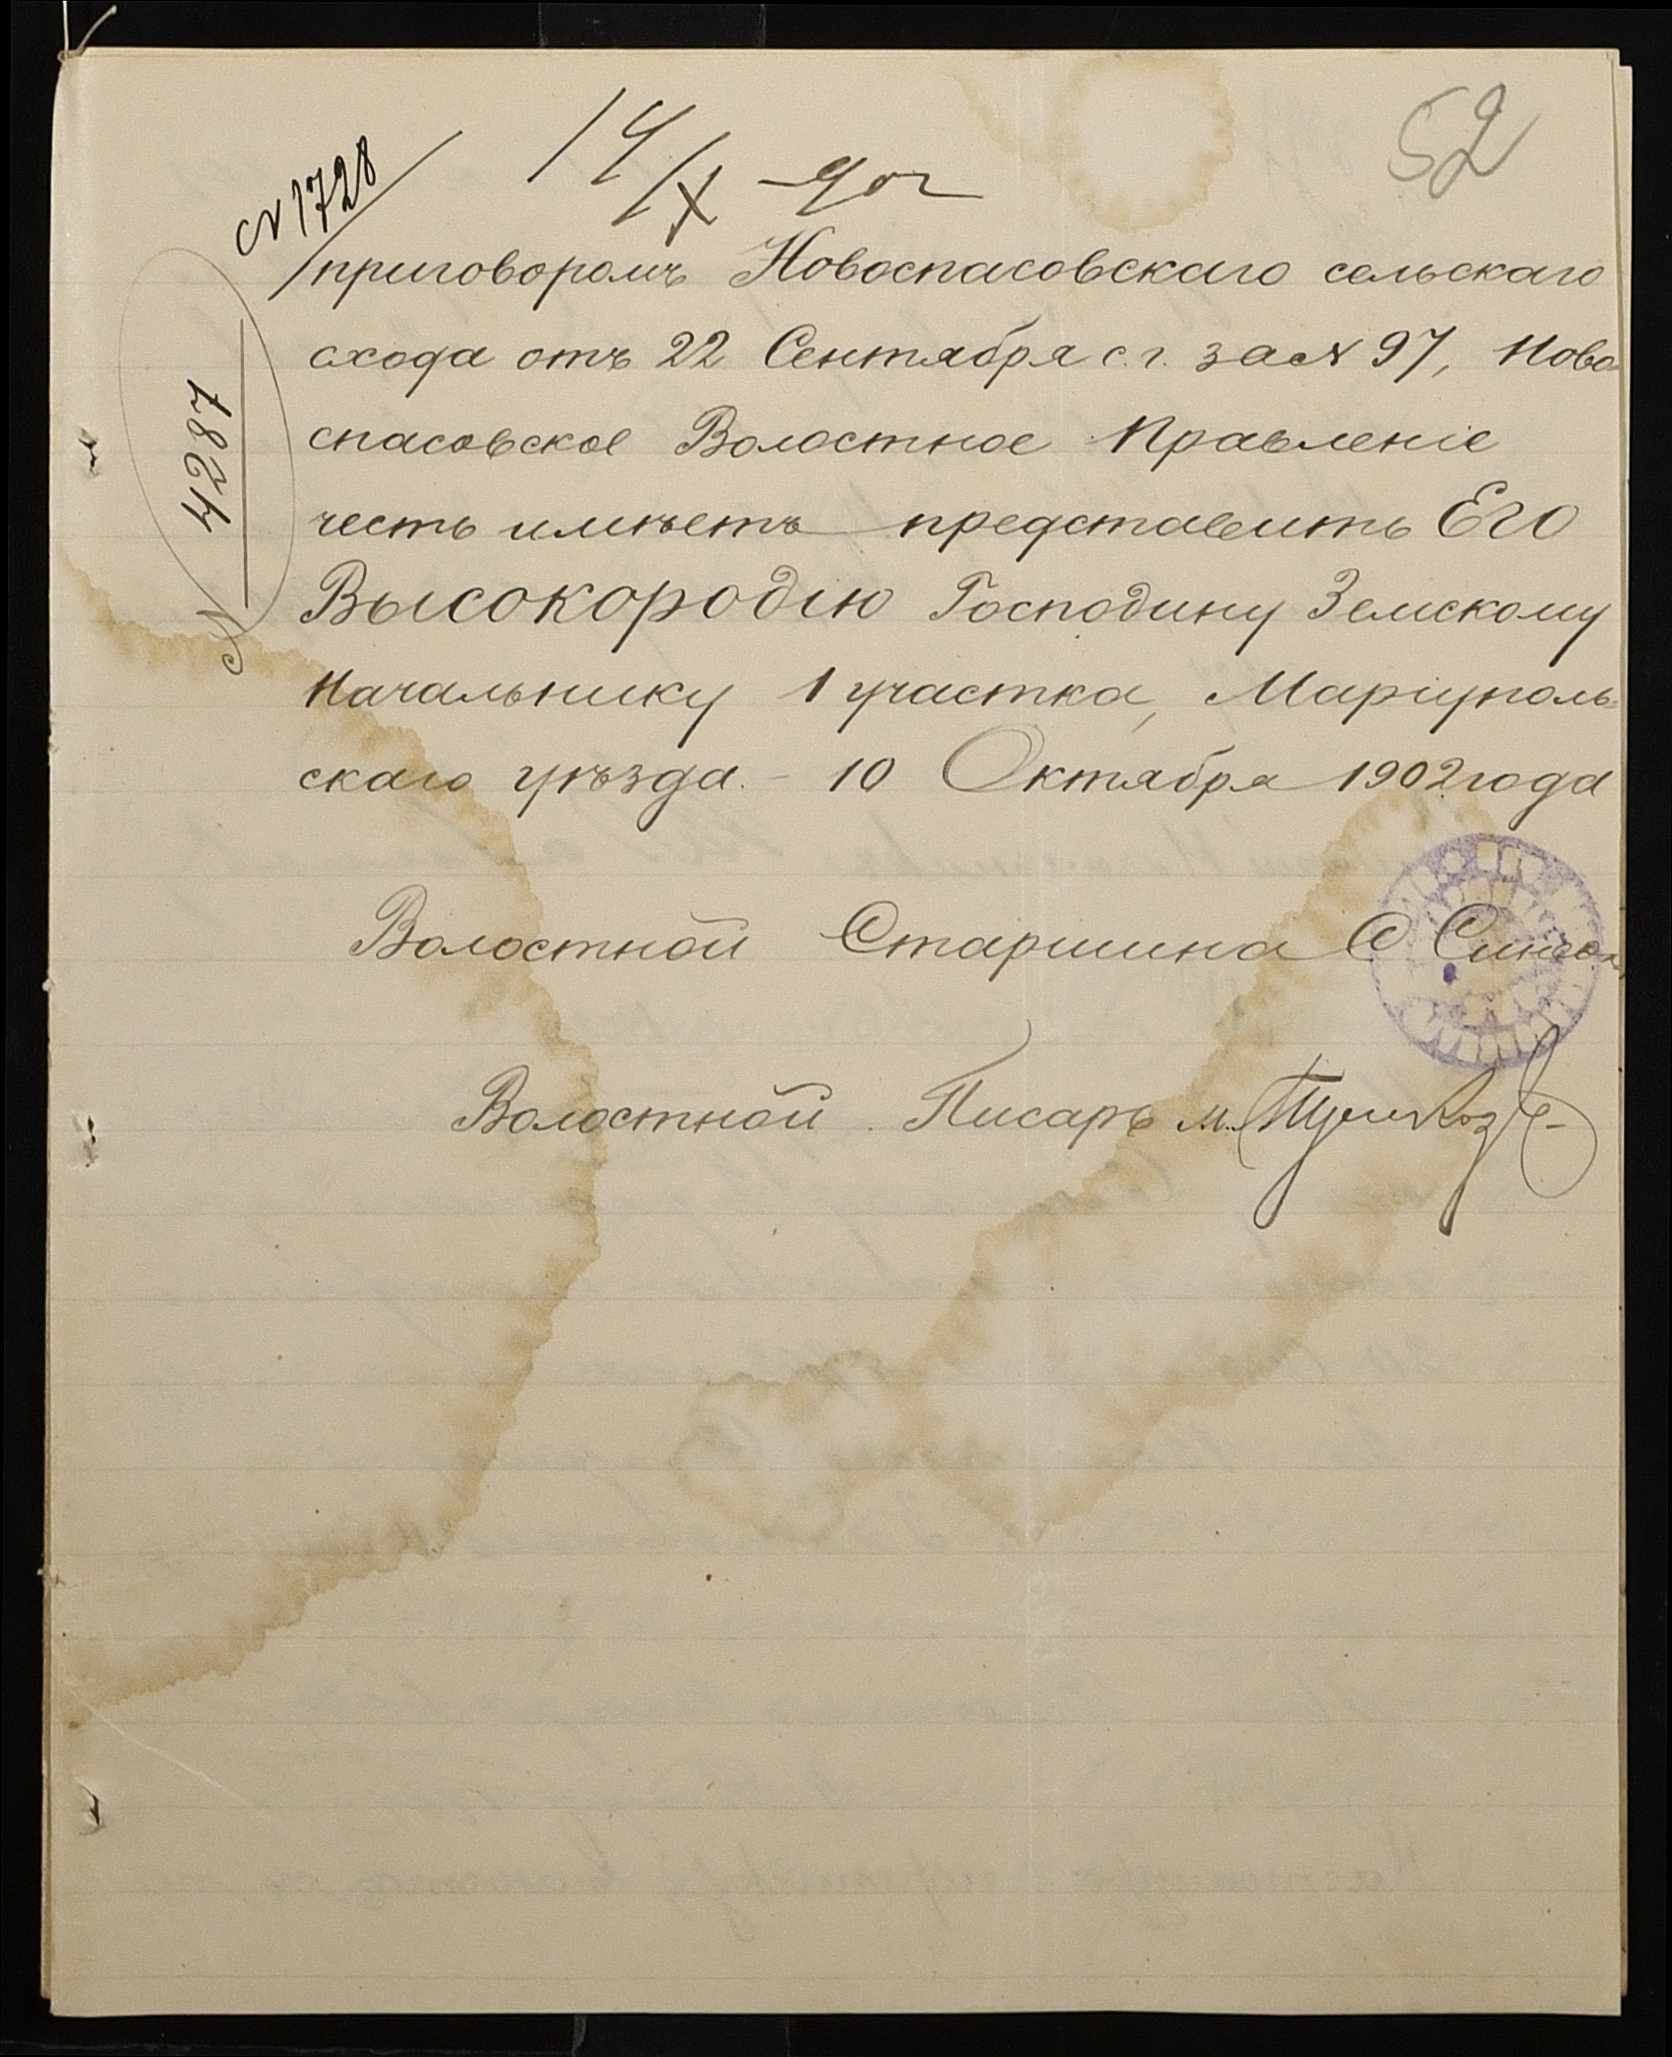 52
14/X 902
№ 1728
№ 4287
приговоромъ Новоспасовскаго сельскаго
схода отъ 22 Сентября с. г. за № 97, Ново-
спасовское Волостное Правленіе
честь имѣетъ представить Его
Высокородію Господину Земскому
Начальнику 1 участка, Маріуполь-
скаго уѣзда. - 10 Октября 1902 года
Волостной Старшина С
Волостной Писарь М.